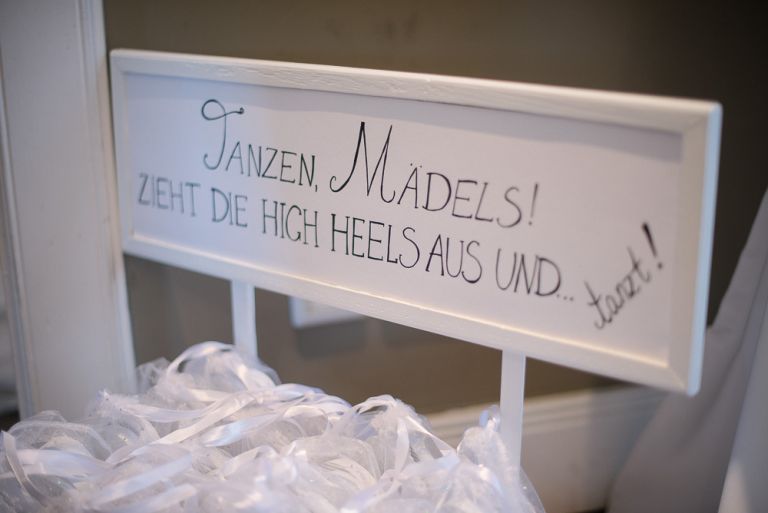 TANZEN, MÄDELS!
ZIEHT DIE HIGH HEELS AUS UND... tanzt!